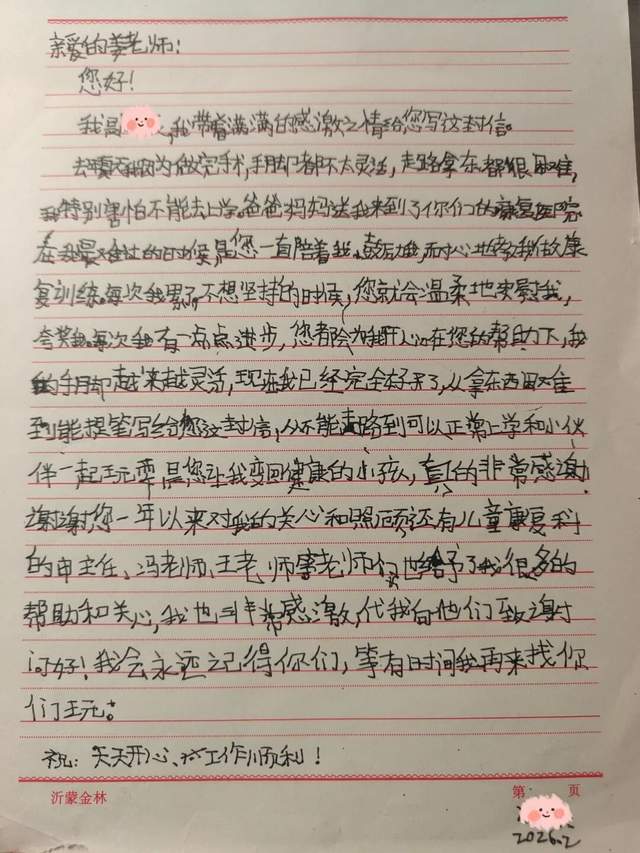 亲爱的姜老师:
您好!
我是,我带着满满的感激之情给您写这封信。
去因为做完手术,手脚都不太灵活,走路拿东都很困难,
我特别害怕不能去上学。爸爸妈妈送我来到了你们的康复医院
在我最难过的日时候,是您一直陪着我,鼓励我,耐心地教我做康
复训练。每次我累了不想坚持的时候,您就会温柔地安慰我,
夸奖我。每次我有一点点进步,您都会为我开心。在您的帮助下,我
的手脚越来越灵活,现在我已经完全好了,从拿东西困难
到能提笔写给您这封信,从不能走路到可以正常上学和小伙
伴一起玩耍是您让我变回健康的小孩,真的非常感谢
谢谢您一年以来对我的关心和照顾还有儿童康复科
的申主任、冯老师、王老师李老师们也给予了我很多的
帮助和关心,我也非常感激,代我向他们致谢
问好!我会永远记得你们,等有时间我再来找你
们玩。
祝:天天开心、工作顺利!
沂蒙金林
第 页
2026.2